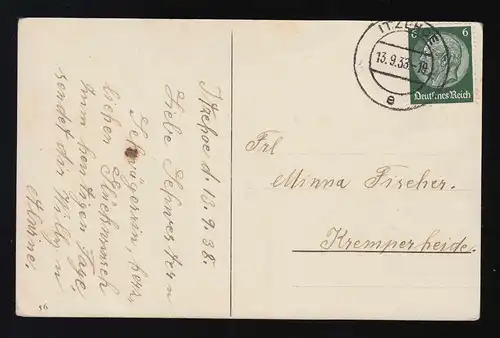 Itzehoe d. 13.9.38.
Liebe Schwester u
Schwägerin, herz-
lichen Glückwunsch
zum heutigen Tage.
sendet dir Willy u
ITZEHOE
13.9.38-19
e
6
6
Deutsches Reich
Frl
Minna Fischer.
Kremperheide.
56